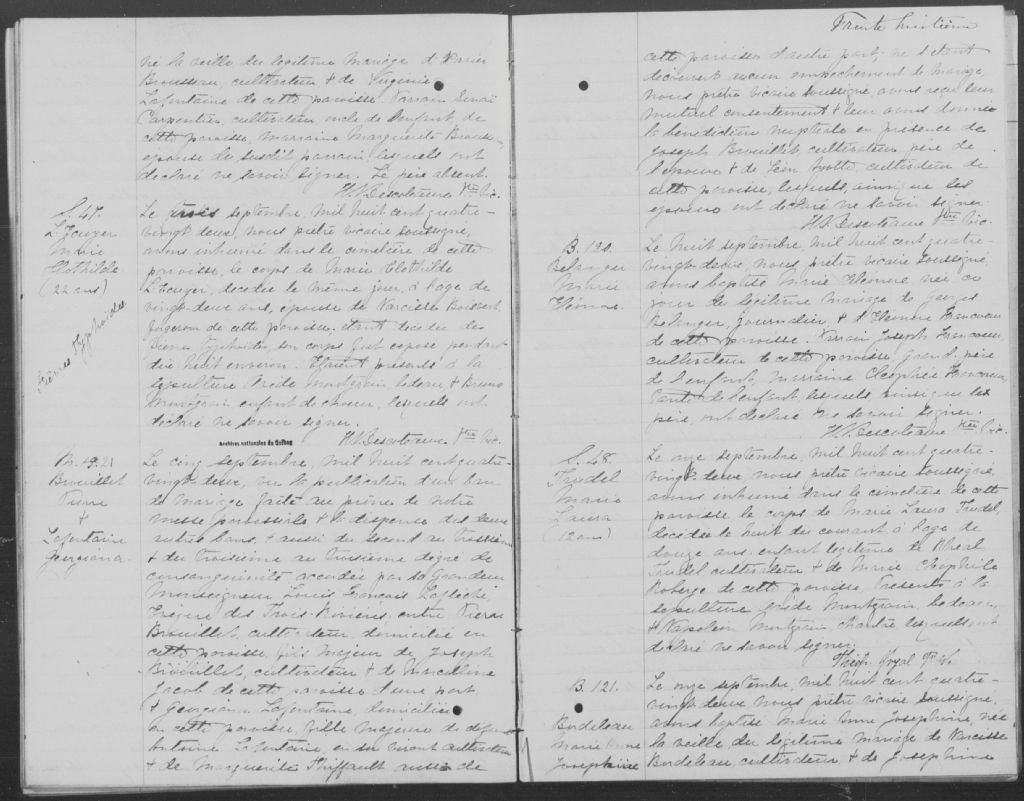 né la veille du légitime mariage d'
Brousseau, cultivateur & de Virginie
Lafontaine de cette paroisse. Parrain
Carpentier, cultivateur oncle de l'enfant de
cette paroisse, marraine Marguerite
épouse du susdit parrain lesquels ont
déclaré ne savoir signer. Le père absent.
Descoteaux Ptre Vic.
S. 47.
Marie
Clothilde
(22 ans)
fièvres typhoïdes
Le trois septembre, mil huit cent quatre-
vingt deux, nous prêtre vicaire soussigné,
avons inhumé dans le cimetière de cette
paroisse, le corps de Marie Clothilde
décédée le même jour, à l'age de
vingt-deux ans, épouse de Narcisse
forgeron de cette paroisse. étant décédée des
fièvres typhoïdes, son corps fut exposé pendant
dix huit environ. Etaient présents à la
sépulture Montgrain, bedeau & Bruno
Montgrain, enfant de choeur, lesquels ont
déclaré ne savoir signer.
Descoteaux Ptre Vic.
Archives nationales du Québec
M. 21
Brouillet
Pierre
&
Lafontaine
Georgiana
Le cinq septembre, mil huit cent quatre-
vingt deux, vu la publication d'un ban
de mariage faite au prône de notre
messe paroissiale & la dispense des deux
autres bans, & aussi du second au troisième
& du troisième au troisième degré de
consanguinité accordée par sa Grandeur
Monseigneur Louis François Laflèche
Evêque des Trois-Rivières, entre Pierre
Brouillet, cultivateur, domicilié en
cette paroisse, fils majeur de Joseph
Brouillet, cultivateur & de Marcelline
Jacob de cette paroisse d'une part
& Georgiana Lafontaine, domiciliée
en cette paroisse, fille majeure de défunt
Antoine Lafontaine, en son vivant cultivateur
& de Marguerite Thiffault aussi de
Trente huitième
cette paroisse d'autre part; ne s'étant
découvert aucun empêchement de mariage,
nous prêtre vicaire soussigné avons reçu leur
mutuel consentement & leur avons donné
la bénédiction nuptiale en présence de
Joseph Brouillet, cultivateur, père de
l'époux & de Léon cultivateur de
cette paroisse, lesquels, ainsi que les
époux ont déclaré ne savoir signer.
Descoteaux Ptre Vic.
B. 120.
Belanger
Marie
Eléonore.
Le huit septembre, mil huit cent quatre-
vingt-deux, nous, prêtre vicaire soussigné,
avons baptisé Marie Eléonore, née ce
jour du légitime mariage de Georges
Belanger, journalier & d'Eléonore Francoeur
de cette paroisse. Parrain Joseph Francoeur,
cultivateur de cette paroisse, grand père
de l'enfant, marraine Cléophée Francoeur,
tante de l'enfant, lesquels, ainsi que le
père, ont déclaré ne savoir signer.
Descoteaux Ptre Vic.
S. 48.
Trudel
Marie
Laura
(12 ans)
Le onze septembre, mil huit cent quatre-
vingt-deux, nous prêtre vicaire soussigné,
avons inhumé dans le cimetière de cette
paroisse le corps de Marie Laura Trudel,
décédée le huit du courant à l'age de
douze ans, enfant légitime de
Trudel cultivateur & de Marie
Roberge de cette paroisse. Présents à la
sépulture Montgrain, bedeau,
& Napoléon Montgrain, chantre lesquels ont
déclaré ne savoir signer.
B. 121.
Bordeleau
Marie Anne
Josephine
Le onze septembre, mil huit cent quatre-
vingt-deux nous prêtre vicaire soussigné,
avons baptisé Marie Anne Josephine, née
la veille, du légitime mariage de Narcisse
Bordeleau, cultivateur, & de Josephine